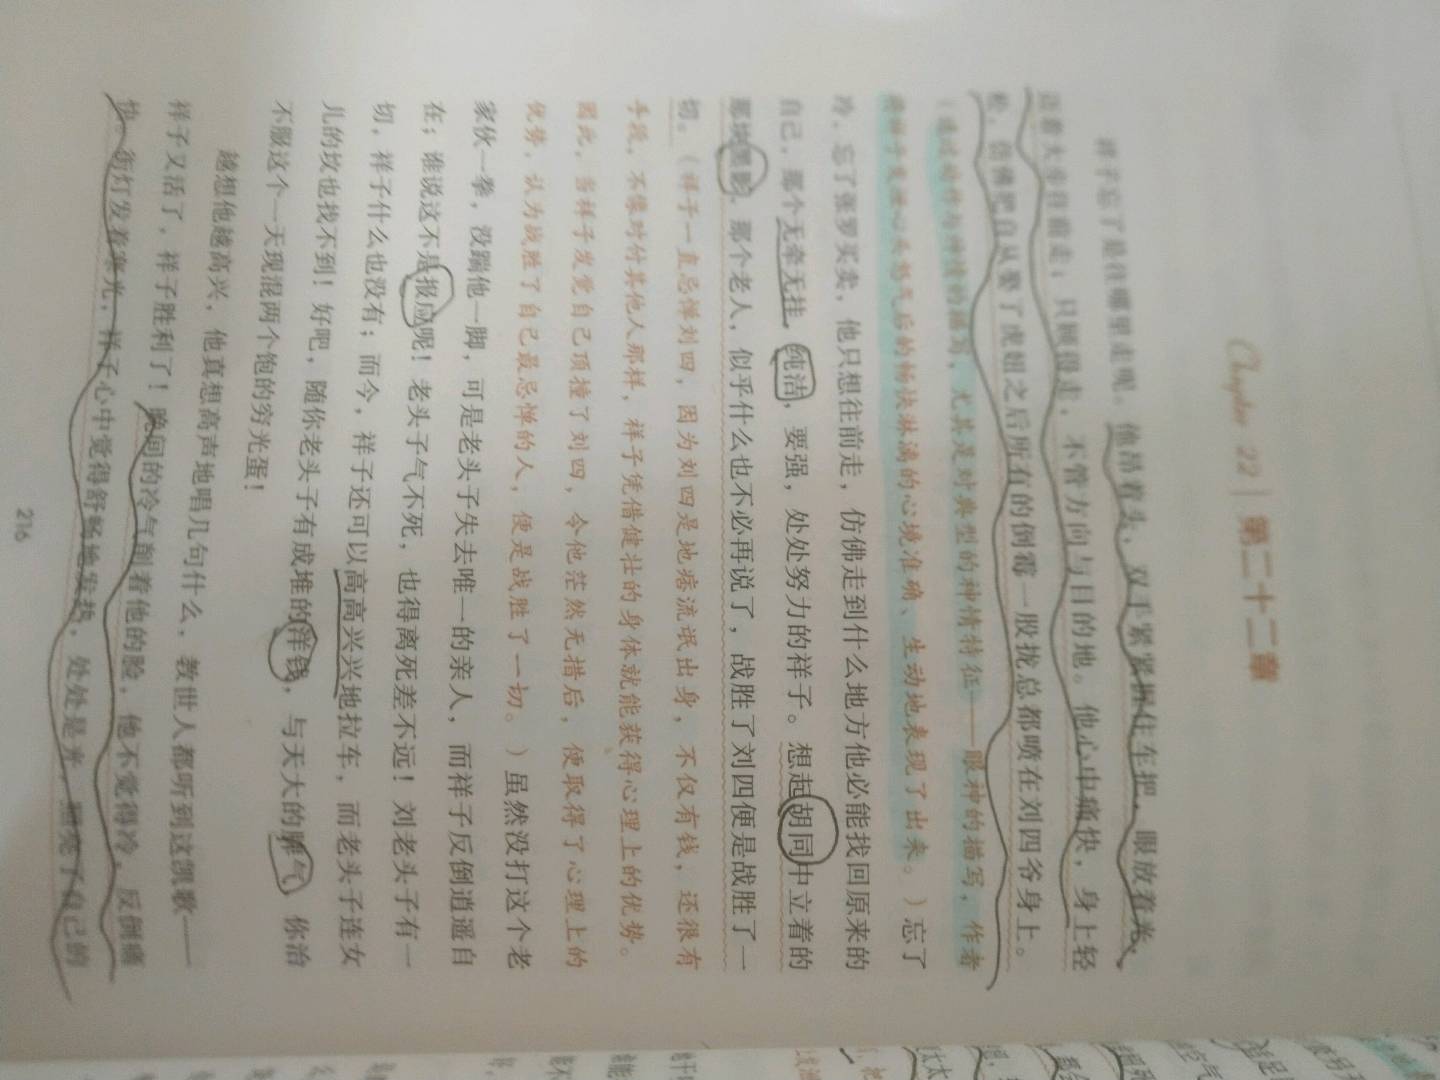 Chapter 22 | 第二十二章
祥子忘了是往哪里走呢。他昂着头，双手紧紧握住车把，眼放着光，
迈着大步往前走；只顾得走，不管方向与目的地。他心中痛快，身上轻
松，仿佛把自从娶了虎妞之后所有的倒霉一股拢总都喷在刘四爷身上。
（通过动作与神情的描写，尤其是对典型的神情特征——眼神的描写，作者
将祥子发泄心头怒气后的畅快淋漓的心境准确、生动地表现了出来。）忘了
冷，忘了张罗买卖，他只想往前走，仿佛走到什么地方他必能找回原来的
自己，那个无牵无挂，纯洁，要强，处处努力的祥子。想起胡同中立着的
那块黑影，那个老人，似乎什么也不必再说了，战胜了刘四便是战胜了一
切。（祥子一直忌惮刘四，因为刘四是地痞流氓出身，不仅有钱，还很有
手段，不像对付其他人那样，祥子凭借健壮的身体就能获得心理上的优势。
因此，当祥子发觉自己顶撞了刘四，令他茫然无措后，便取得了心理上的
优势，认为战胜了自己最忌惮的人，便是战胜了一切。）虽然没打这个老
家伙一拳，没踹他一脚，可是老头子失去唯一的亲人，而祥子反倒逍遥自
在；谁说这不是报应呢！老头子气不死，也得离死差不远！刘老头子有一
切，祥子什么也没有；而今，祥子还可以高高兴兴地拉车，而老头子连女
儿的坟也找不到！好吧，随你老头子有成堆的洋钱，与天大的脾气，你治
不服这个一天现混两个饱的穷光蛋！
越想他越高兴，他真想高声地唱几句什么，教世人都听到这凯歌——
祥子又活了，祥子胜利了！晚间的冷气削着他的脸，他不觉得冷，反倒痛
快。街灯发着寒光，祥子心中觉得舒畅地发热，处处是光，照亮了自己的
216